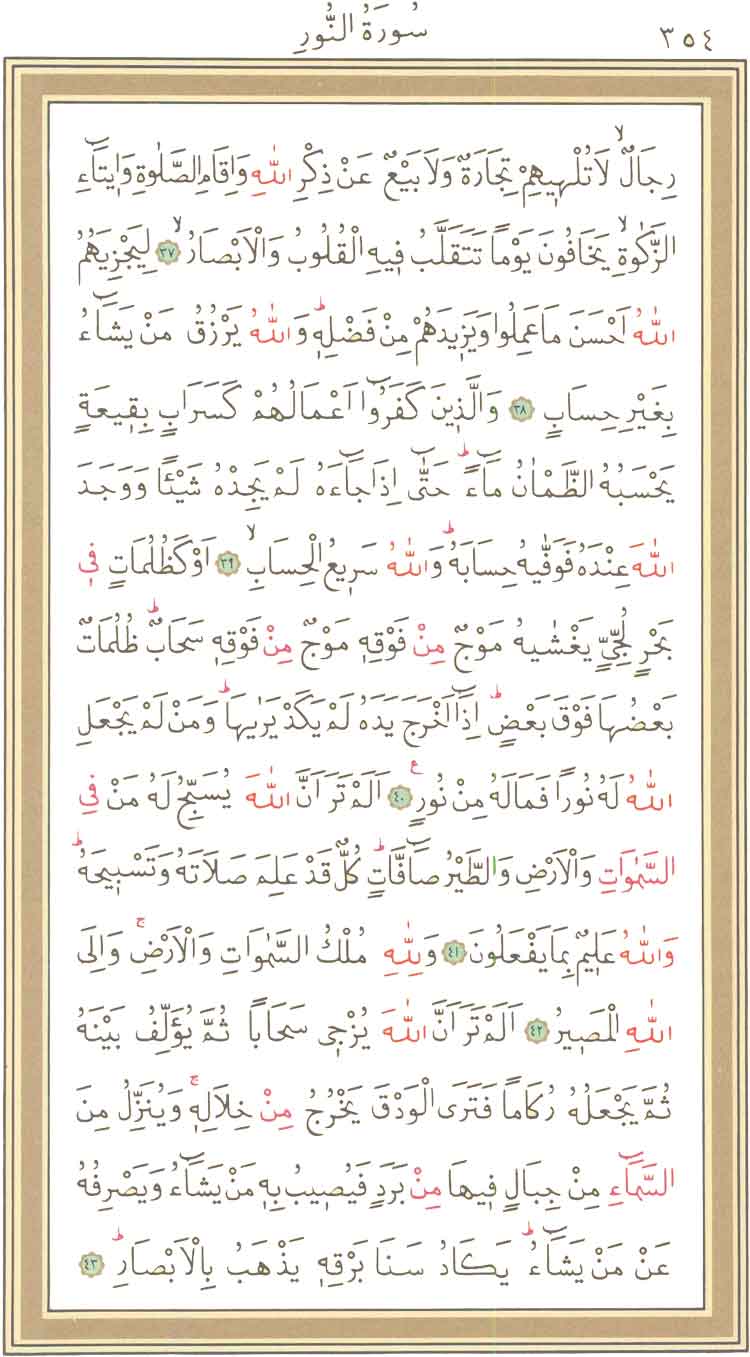 ٣٥٤
سُورَةُ النُّورِ
رِجَالٌۙ لَا تُلْه۪يهِمْ تِجَارَةٌ وَلَا بَيْعٌ عَنْ ذِكْرِ اللّٰهِ وَاِقَامِ الصَّلٰوةِ وَا۪يتَٓاءِ
الزَّكٰوةِۙ يَخَافُونَ يَوْمًا تَتَقَلَّبُ ف۪يهِ الْقُلُوبُ وَالْاَبْصَارُۙ ﴿٣٧﴾ لِيَجْزِيَهُمُ
اللّٰهُ اَحْسَنَ مَا عَمِلُوا وَيَز۪يدَهُمْ مِنْ فَضْلِه۪ۜ وَاللّٰهُ يَرْزُقُ مَنْ يَشَٓاءُ
بِغَيْرِ حِسَابٍ ﴿٣٨﴾ وَالَّذ۪ينَ كَفَرُٓوا اَعْمَالُهُمْ كَسَرَابٍ بِق۪يعَةٍ
يَحْسَبُهُ الظَّمْاٰنُ مَٓاءًۜ حَتّٰٓى اِذَا جَٓاءَهُ لَمْ يَجِدْهُ شَيْـًٔا وَوَجَدَ
اللّٰهَ عِنْدَهُ فَوَفّٰيهُ حِسَابَهُۜ وَاللّٰهُ سَر۪يعُ الْحِسَابِۙ ﴿٣٩﴾ اَوْ كَظُلُمَاتٍ ف۪ي
بَحْرٍ لُجِّيٍّ يَغْشٰيهُ مَوْجٌ مِنْ فَوْقِه۪ مَوْجٌ مِنْ فَوْقِه۪ سَحَابٌۜ ظُلُمَاتٌ
بَعْضُهَا فَوْقَ بَعْضٍۜ اِذَٓا اَخْرَجَ يَدَهُ لَمْ يَكَدْ يَرٰيهَاۜ وَمَنْ لَمْ يَجْعَلِ
اللّٰهُ لَهُ نُورًا فَمَا لَهُ مِنْ نُورٍ۟ ﴿٤٠﴾ اَلَمْ تَرَ اَنَّ اللّٰهَ يُسَبِّحُ لَهُ مَنْ فِي
السَّمٰوَاتِ وَالْاَرْضِ وَالطَّيْرُ صَٓافَّاتٍۜ كُلٌّ قَدْ عَلِمَ صَلَاتَهُ وَتَسْب۪يحَهُۜ
وَاللّٰهُ عَل۪يمٌ بِمَا يَفْعَلُونَ ﴿٤١﴾ وَلِلّٰهِ مُلْكُ السَّمٰوَاتِ وَالْاَرْضِۚ وَاِلَى
اللّٰهِ الْمَص۪يرُ ﴿٤٢﴾ اَلَمْ تَرَ اَنَّ اللّٰهَ يُزْج۪ي سَحَابًا ثُمَّ يُؤَلِّفُ بَيْنَهُ
ثُمَّ يَجْعَلُهُ رُكَامًا فَتَرَى الْوَدْقَ يَخْرُجُ مِنْ خِلَالِه۪ۚ وَيُنَزِّلُ مِنَ
السَّمَٓاءِ مِنْ جِبَالٍ ف۪يهَا مِنْ بَرَدٍ فَيُص۪يبُ بِه۪ مَنْ يَشَٓاءُ وَيَصْرِفُهُ
عَنْ مَنْ يَشَٓاءُۜ يَكَادُ سَنَا بَرْقِه۪ يَذْهَبُ بِالْاَبْصَارِۜ ﴿٤٣﴾